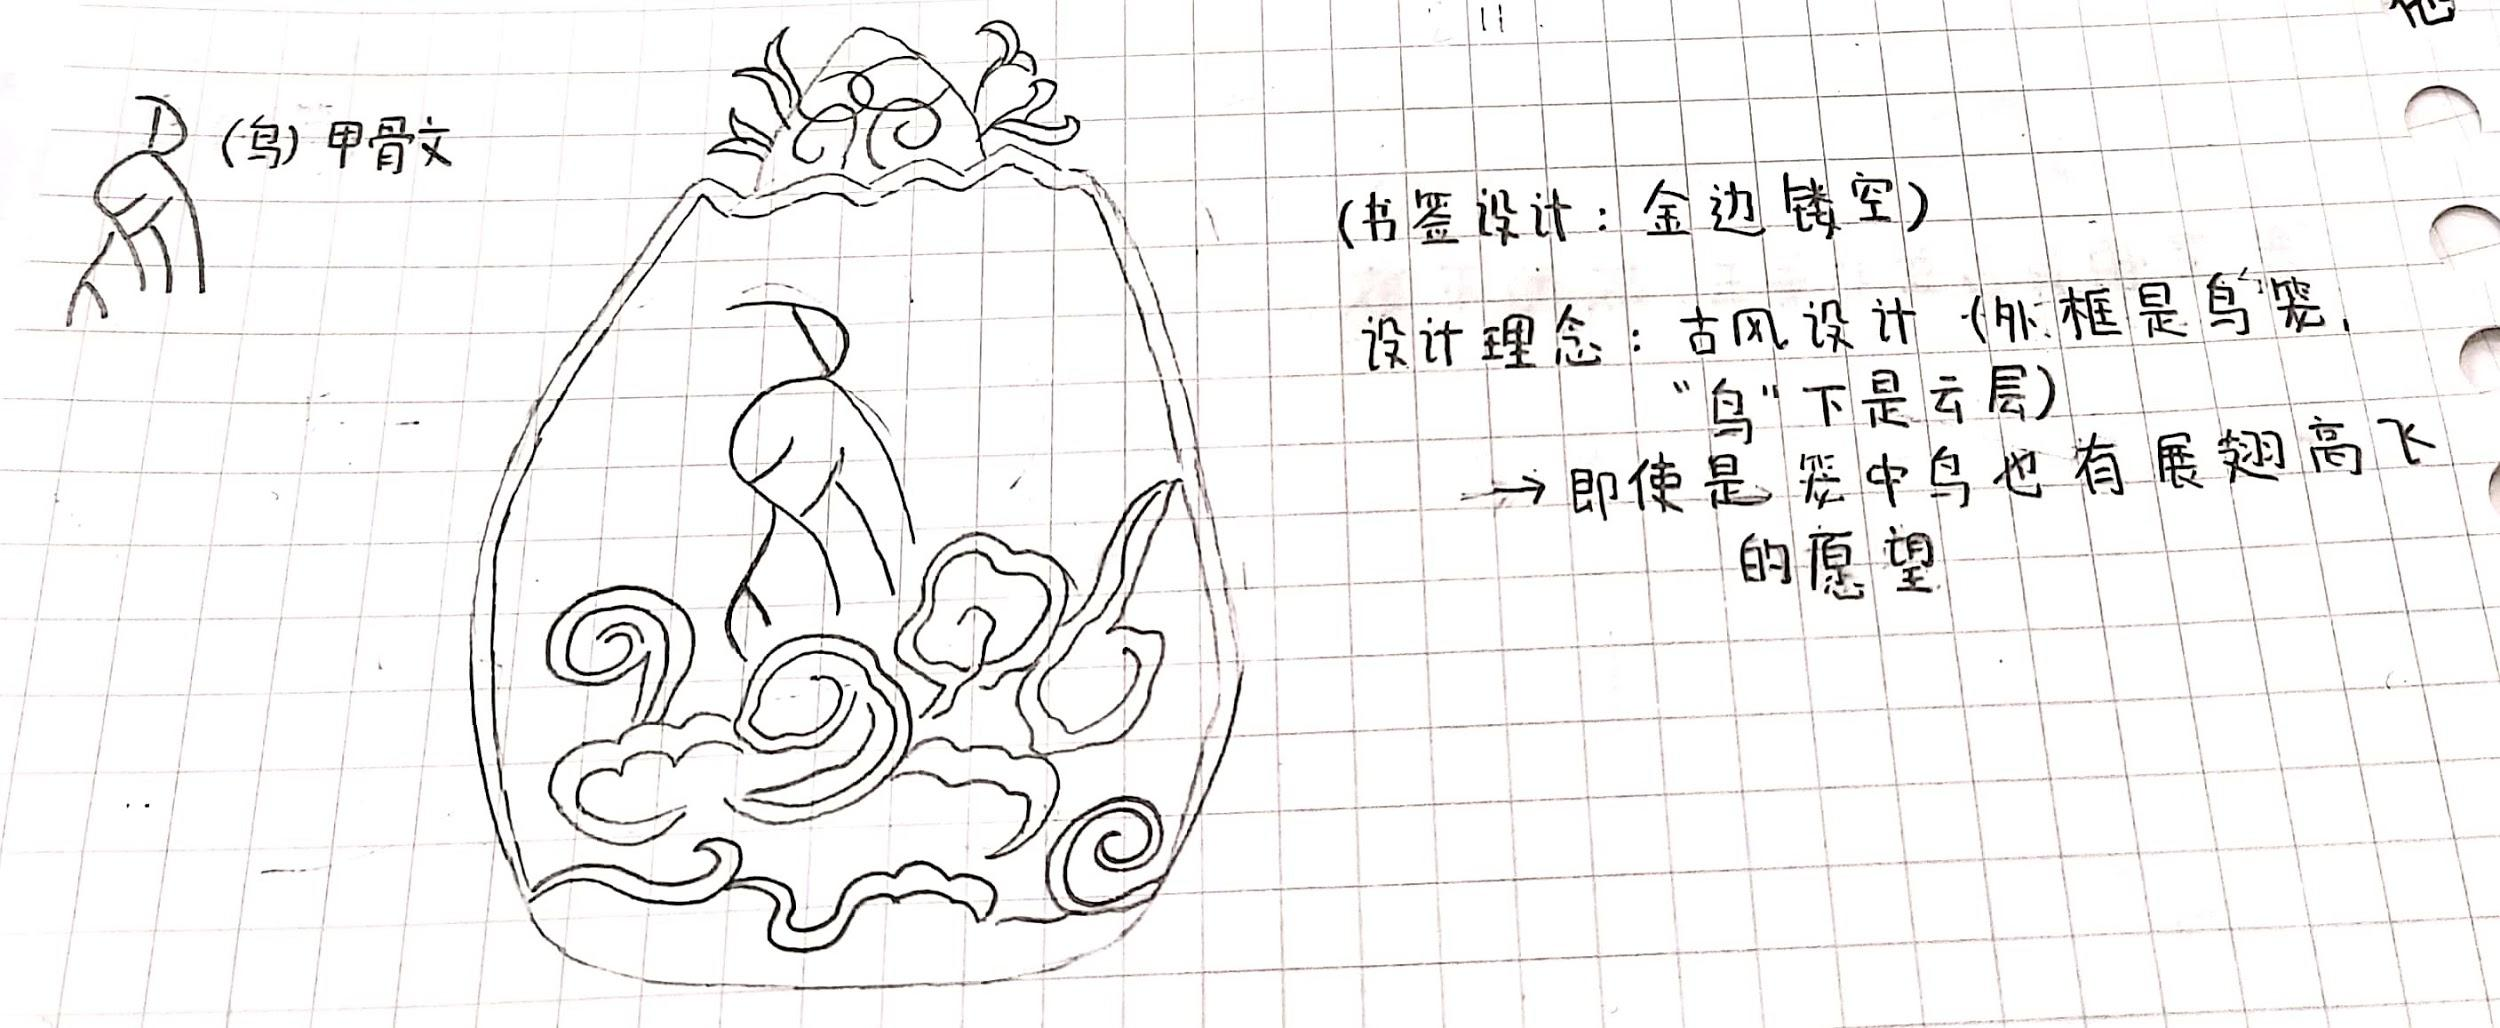 (鸟) 甲骨文
(书签设计：金边镂空)
设计理念：古风设计 (外框是鸟笼,
"鸟"下是云层)
→ 即使是笼中鸟也有展翅高飞
的愿望